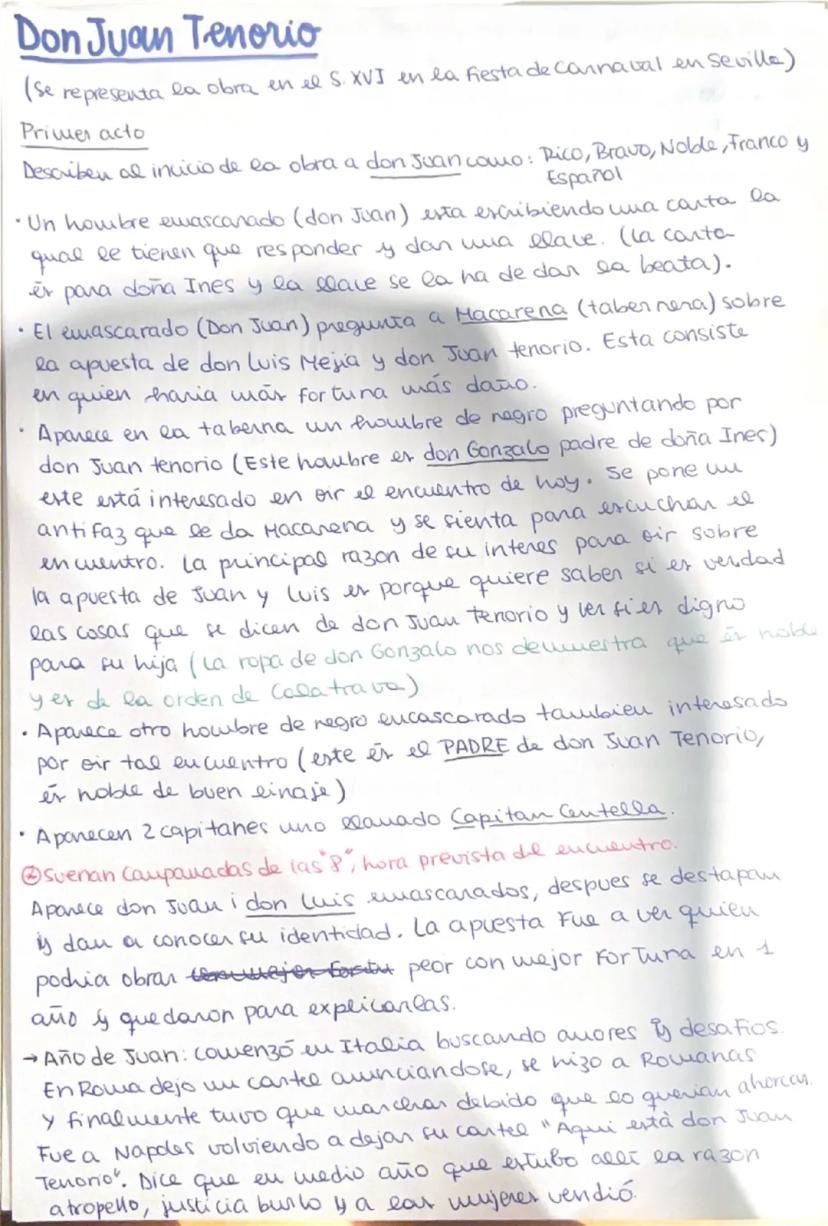 Don Juan Tenorio
(Se representa la obra en el S. XVI en la fiesta de Carnaval en Sevilla)
Primer acto
Describen al inicio de la obra a don Juan como: Rico, Bravo, Noble, Franco y
Español
· Un hombre emascarado (don Juan) esta escribiendo una carta la
qual le tienen que responder y dan una llave. (La carta
és para doña Ines y la llave se la ha de dar la beata).
· El emascarado (Don Juan) pregunta a Macarena (tabernera) sobre
la apuesta de don Luis Mejia y don Juan tenorio. Esta consiste
en quien haria más fortuna más daño.
· Aparece en la taberna un hombre de negro preguntando por
don Juan tenorio (Este hombre es don Gonzalo padre de doña Ines)
este está interesado en oir el encuentro de hoy. Se pone un
antifaz que le da Macarena y se sienta para escuchar el
encuentro. La principal razon de su interes para oir sobre
la apuesta de Juan y Luis es porque quiere saber si es verdad
las cosas que se dicen de don Juan tenorio y ver si es digno
para su hija (La ropa de don Gonzalo nos demuestra que és noble
y es de la orden de Calatrava)
· Aparece otro hombre de negro encascarado tambien interesado
por oir tal encuentro (este és el PADRE de don Juan Tenorio,
és noble de buen linaje)
· Aparecen 2 capitanes uno llamado Capitan Centella.
② Suenan Campanadas de las "8", hora prevista del encuentro.
Aparece don Juan i don Luis emascarados, despues se destapan
y dan a conocer su identidad. La apuesta Fue a ver quien
podria obrar con mejor fortu peor con mejor Fortuna en 1
año y quedaron para explicarlas.
→ Año de Juan: comenzó en Italia buscando amores y desafios.
En Roma dejo un cartel anunciandose, se hizo a Romanas
y finalmente tuvo que marchar debido que lo querian ahorcar.
Fue a Napoles volviendo a dejar su cartel "Aqui està don Juan
Tenorio". Dice que en medio año que estubo allí la razon
atropello, justicia burlo y a las mujeres vendió.